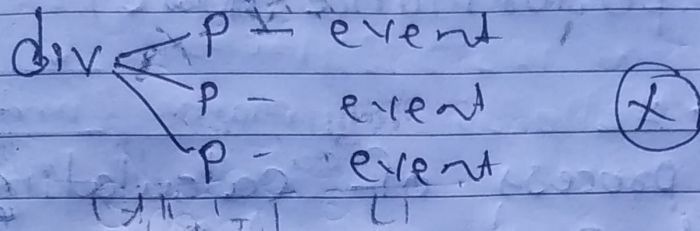 div p - event
p - event X
p - event